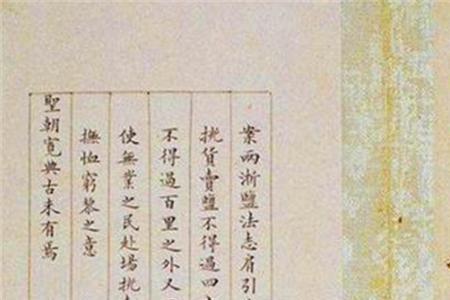 案兩漸鹽法志肩引
挑貨賣鹽不得過四
不得過百里之外又
使無業之民赴場挑
撫恤窮黎之意
聖朝寬典古未有焉